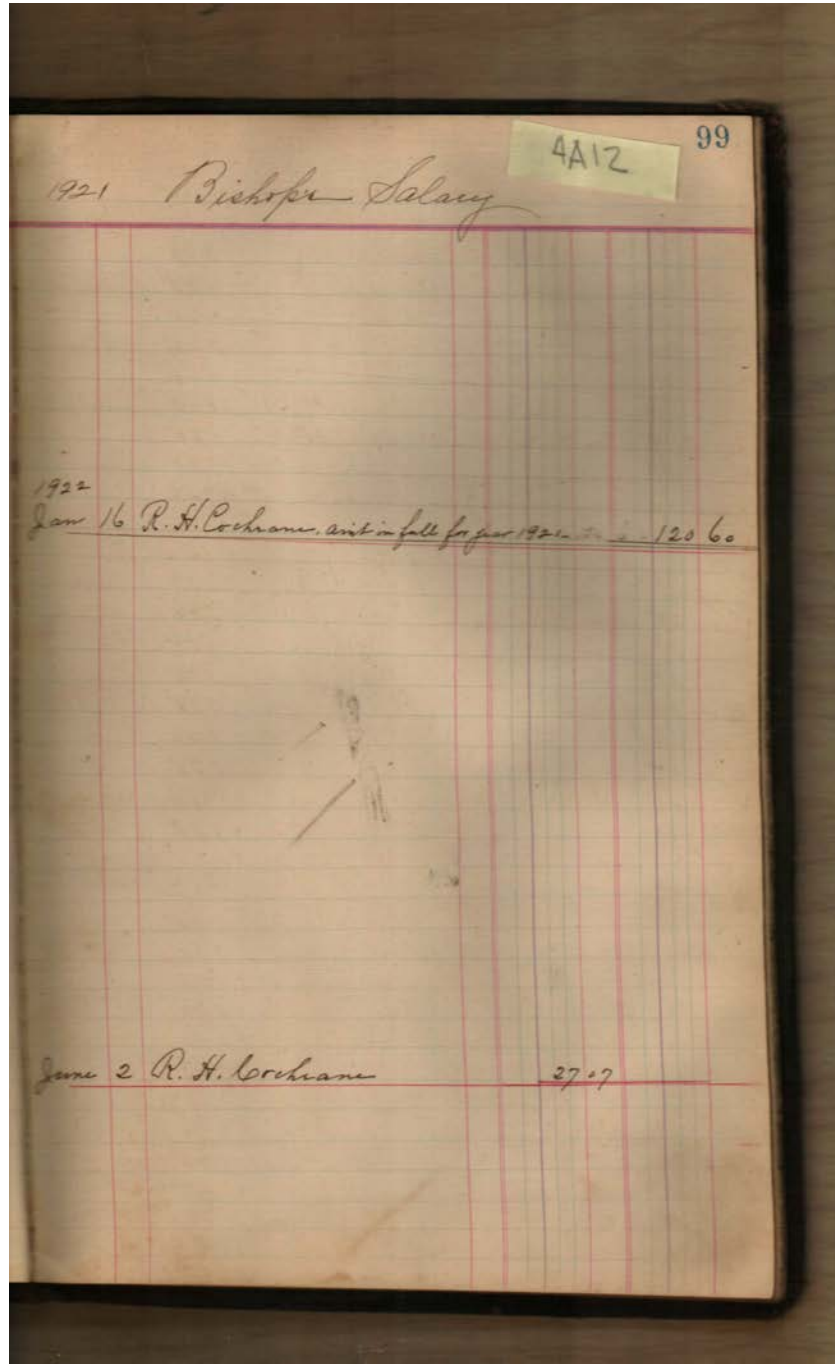 99
4A12
1921 Bishops Salary
1922
Jan 16 R. H. Cochrane, am't in full for year 1921 120 60
June 2 R. H. Cochrane 27 07